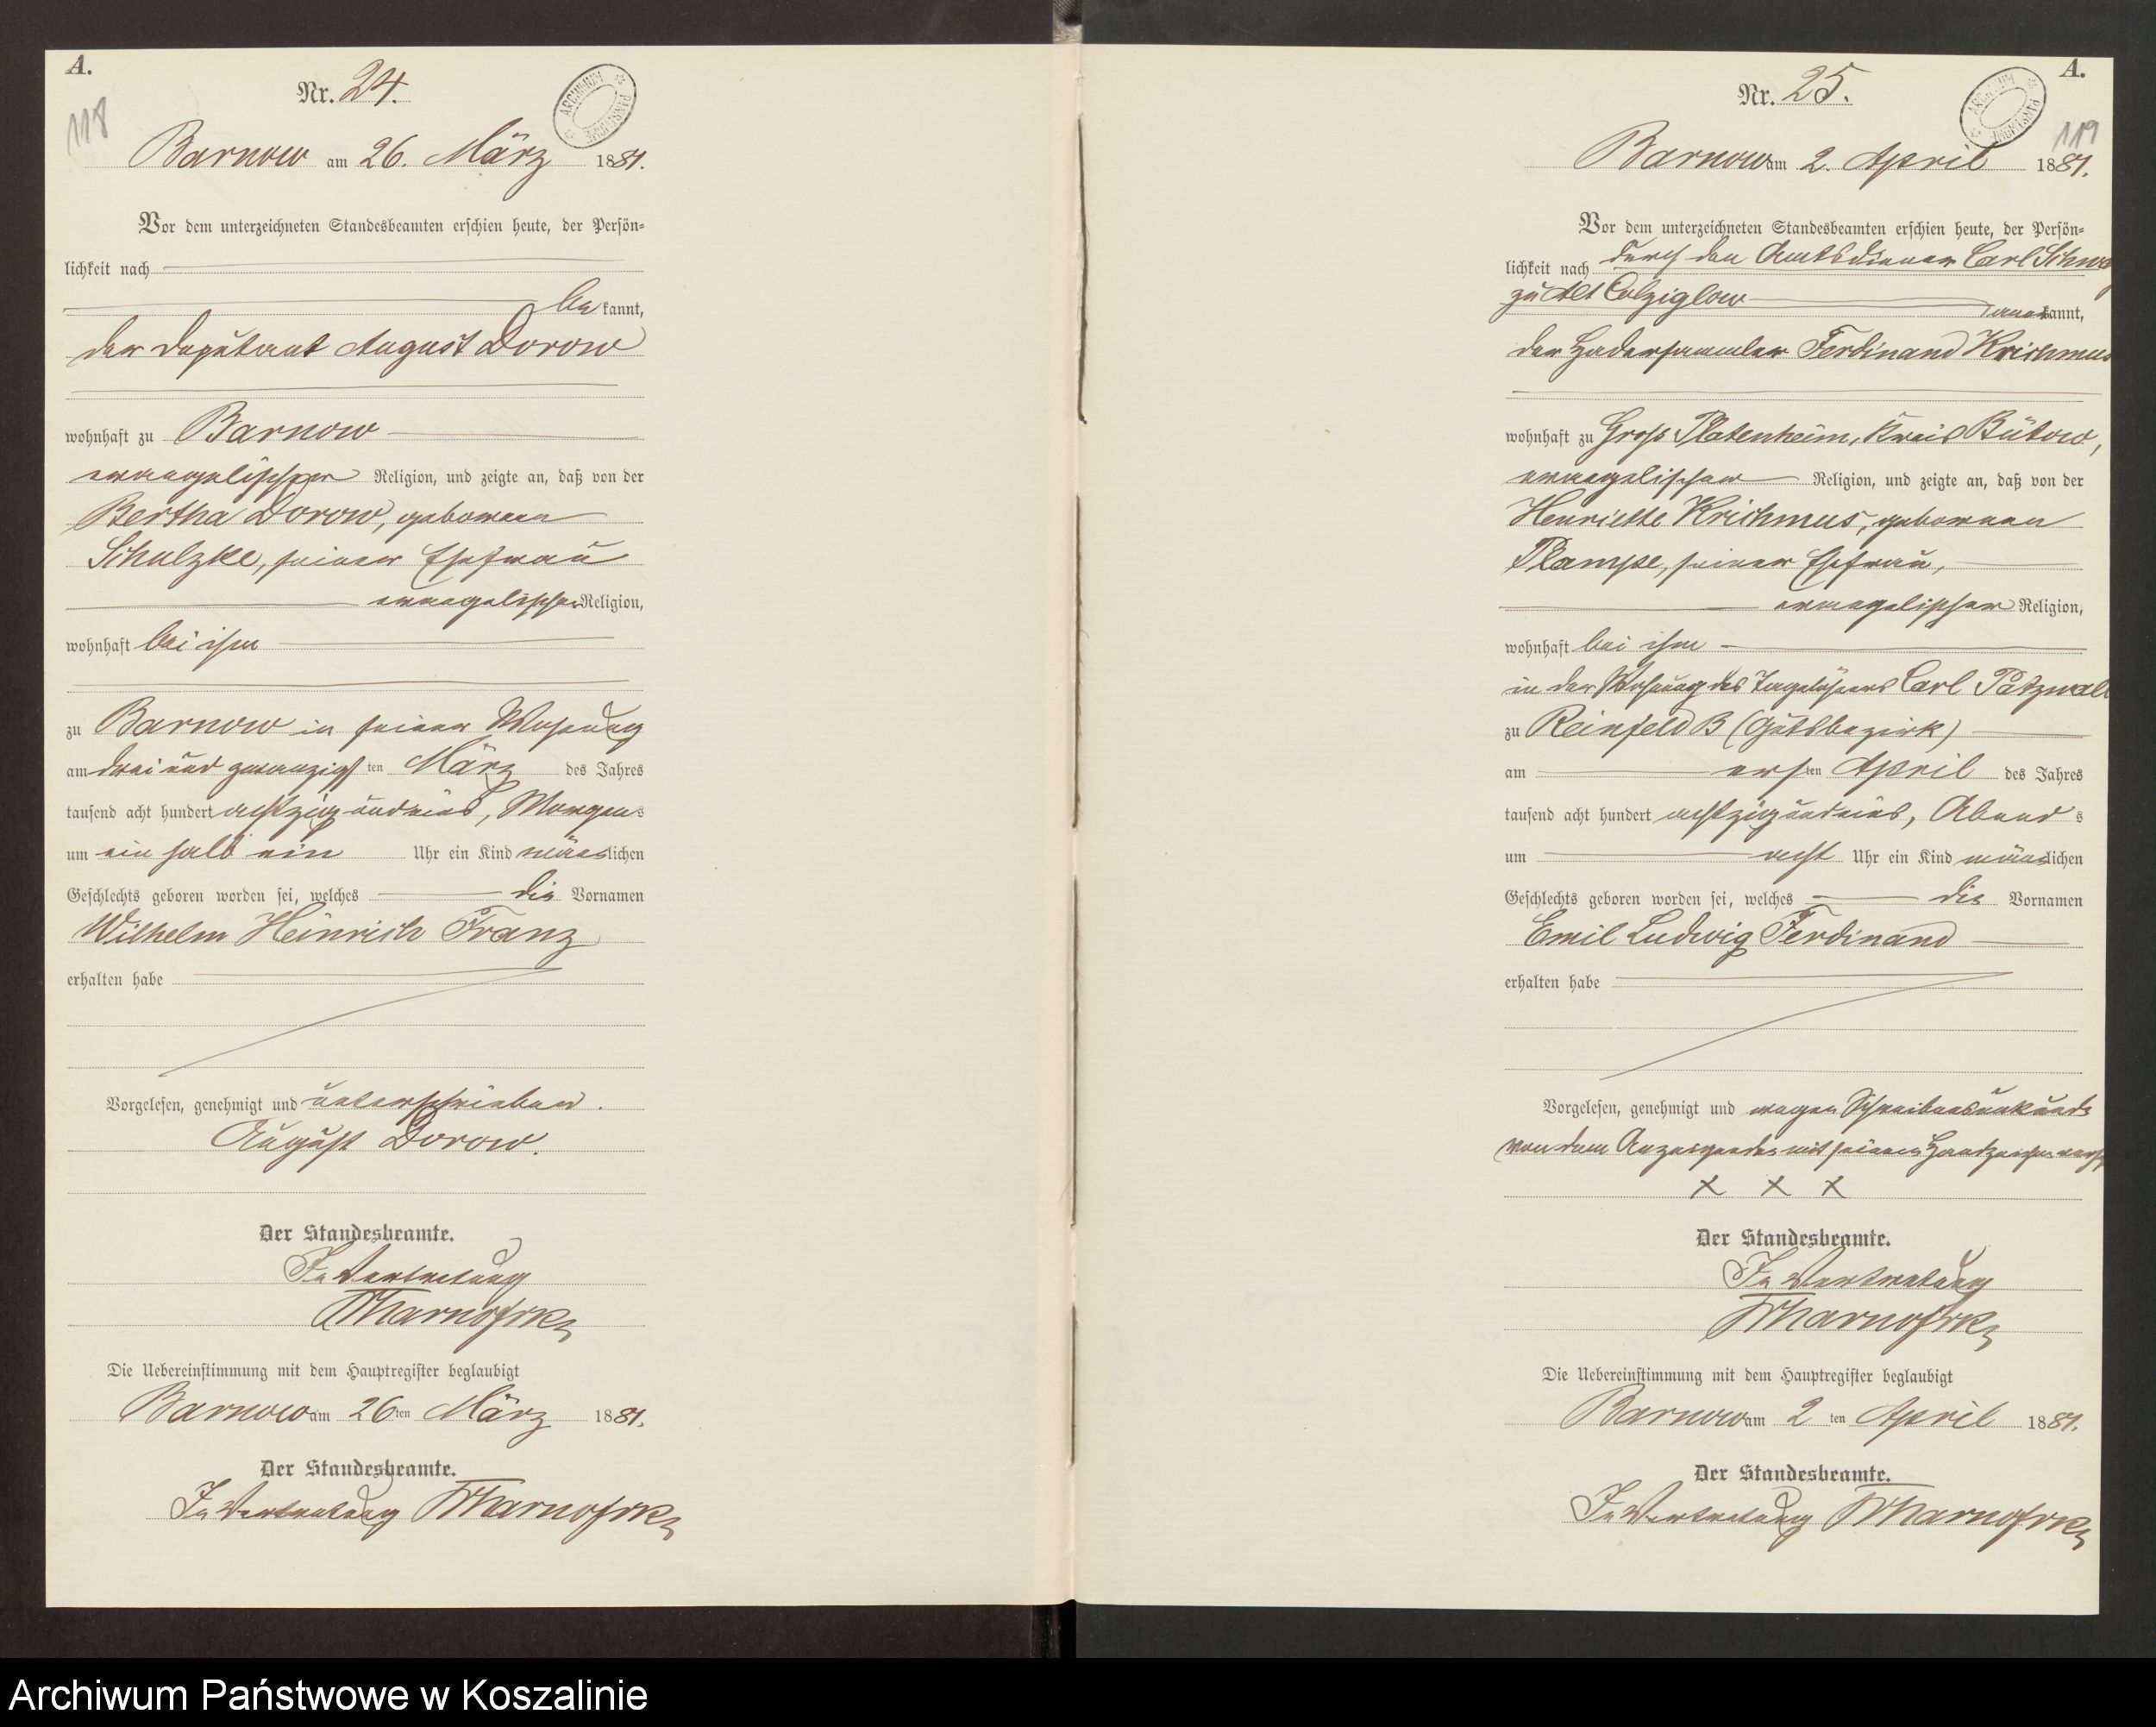 A.
118
Nr. 24.
ARCHIWUM PAŃSTWOWE
Barnow am 26. März 1881.
Vor dem unterzeichneten Standesbeamten erschien heute, der Persön-
lichkeit nach
be kannt,
der Deputant August Dorow
wohnhaft zu Barnow
evangelischer Religion, und zeigte an, daß von der
Bertha Dorow, geborenen
Schulzke, seiner Ehefrau
evangelischer Religion,
wohnhaft bei ihm
zu Barnow in seiner Wohnung
am drei und zwanzigsten März des Jahres
tausend acht hundert achtzig und eins, Morgens
um ein halb ein Uhr ein Kind männlichen
Geschlechts geboren worden sei, welches die Vornamen
Wilhelm Heinrich Franz
erhalten habe
Vorgelesen, genehmigt und unterschrieben.
August Dorow.
Der Standesbeamte.
In Vertretung
Die Uebereinstimmung mit dem Hauptregister beglaubigt
Barnow am 26ten März 1881.
Der Standesbeamte.
In Vertretung
A.
119
Nr. 25.
ARCHIWUM PAŃSTWOWE
Barnow am 2. April 1881.
Vor dem unterzeichneten Standesbeamten erschien heute, der Persön-
lichkeit nach durch den Amtsdiener Carl
zu Alt Colziglow
anerkannt,
der Hadersammler Ferdinand Krichmus
wohnhaft zu Groß Platenheim, Kreis Bütow,
evangelischer Religion, und zeigte an, daß von der
Henriette Krichmus, geborenen
Plampe, seiner Ehefrau,
evangelischer Religion,
wohnhaft bei ihm
in der Wohnung des Tagelöhners Carl
zu Reinfeld B (Gutsbezirk)
am ersten April des Jahres
tausend acht hundert achtzig und eins, Abends
um acht Uhr ein Kind männlichen
Geschlechts geboren worden sei, welches die Vornamen
Emil Ludwig Ferdinand
erhalten habe
Vorgelesen, genehmigt und wegen Schreibensunkunde
von dem Anzeigenden mit seinem Handzeichen
x x x
Der Standesbeamte.
In Vertretung
Die Uebereinstimmung mit dem Hauptregister beglaubigt
Barnow am 2 ten April 1881.
Der Standesbeamte.
In Vertretung
Archiwum Państwowe w Koszalinie